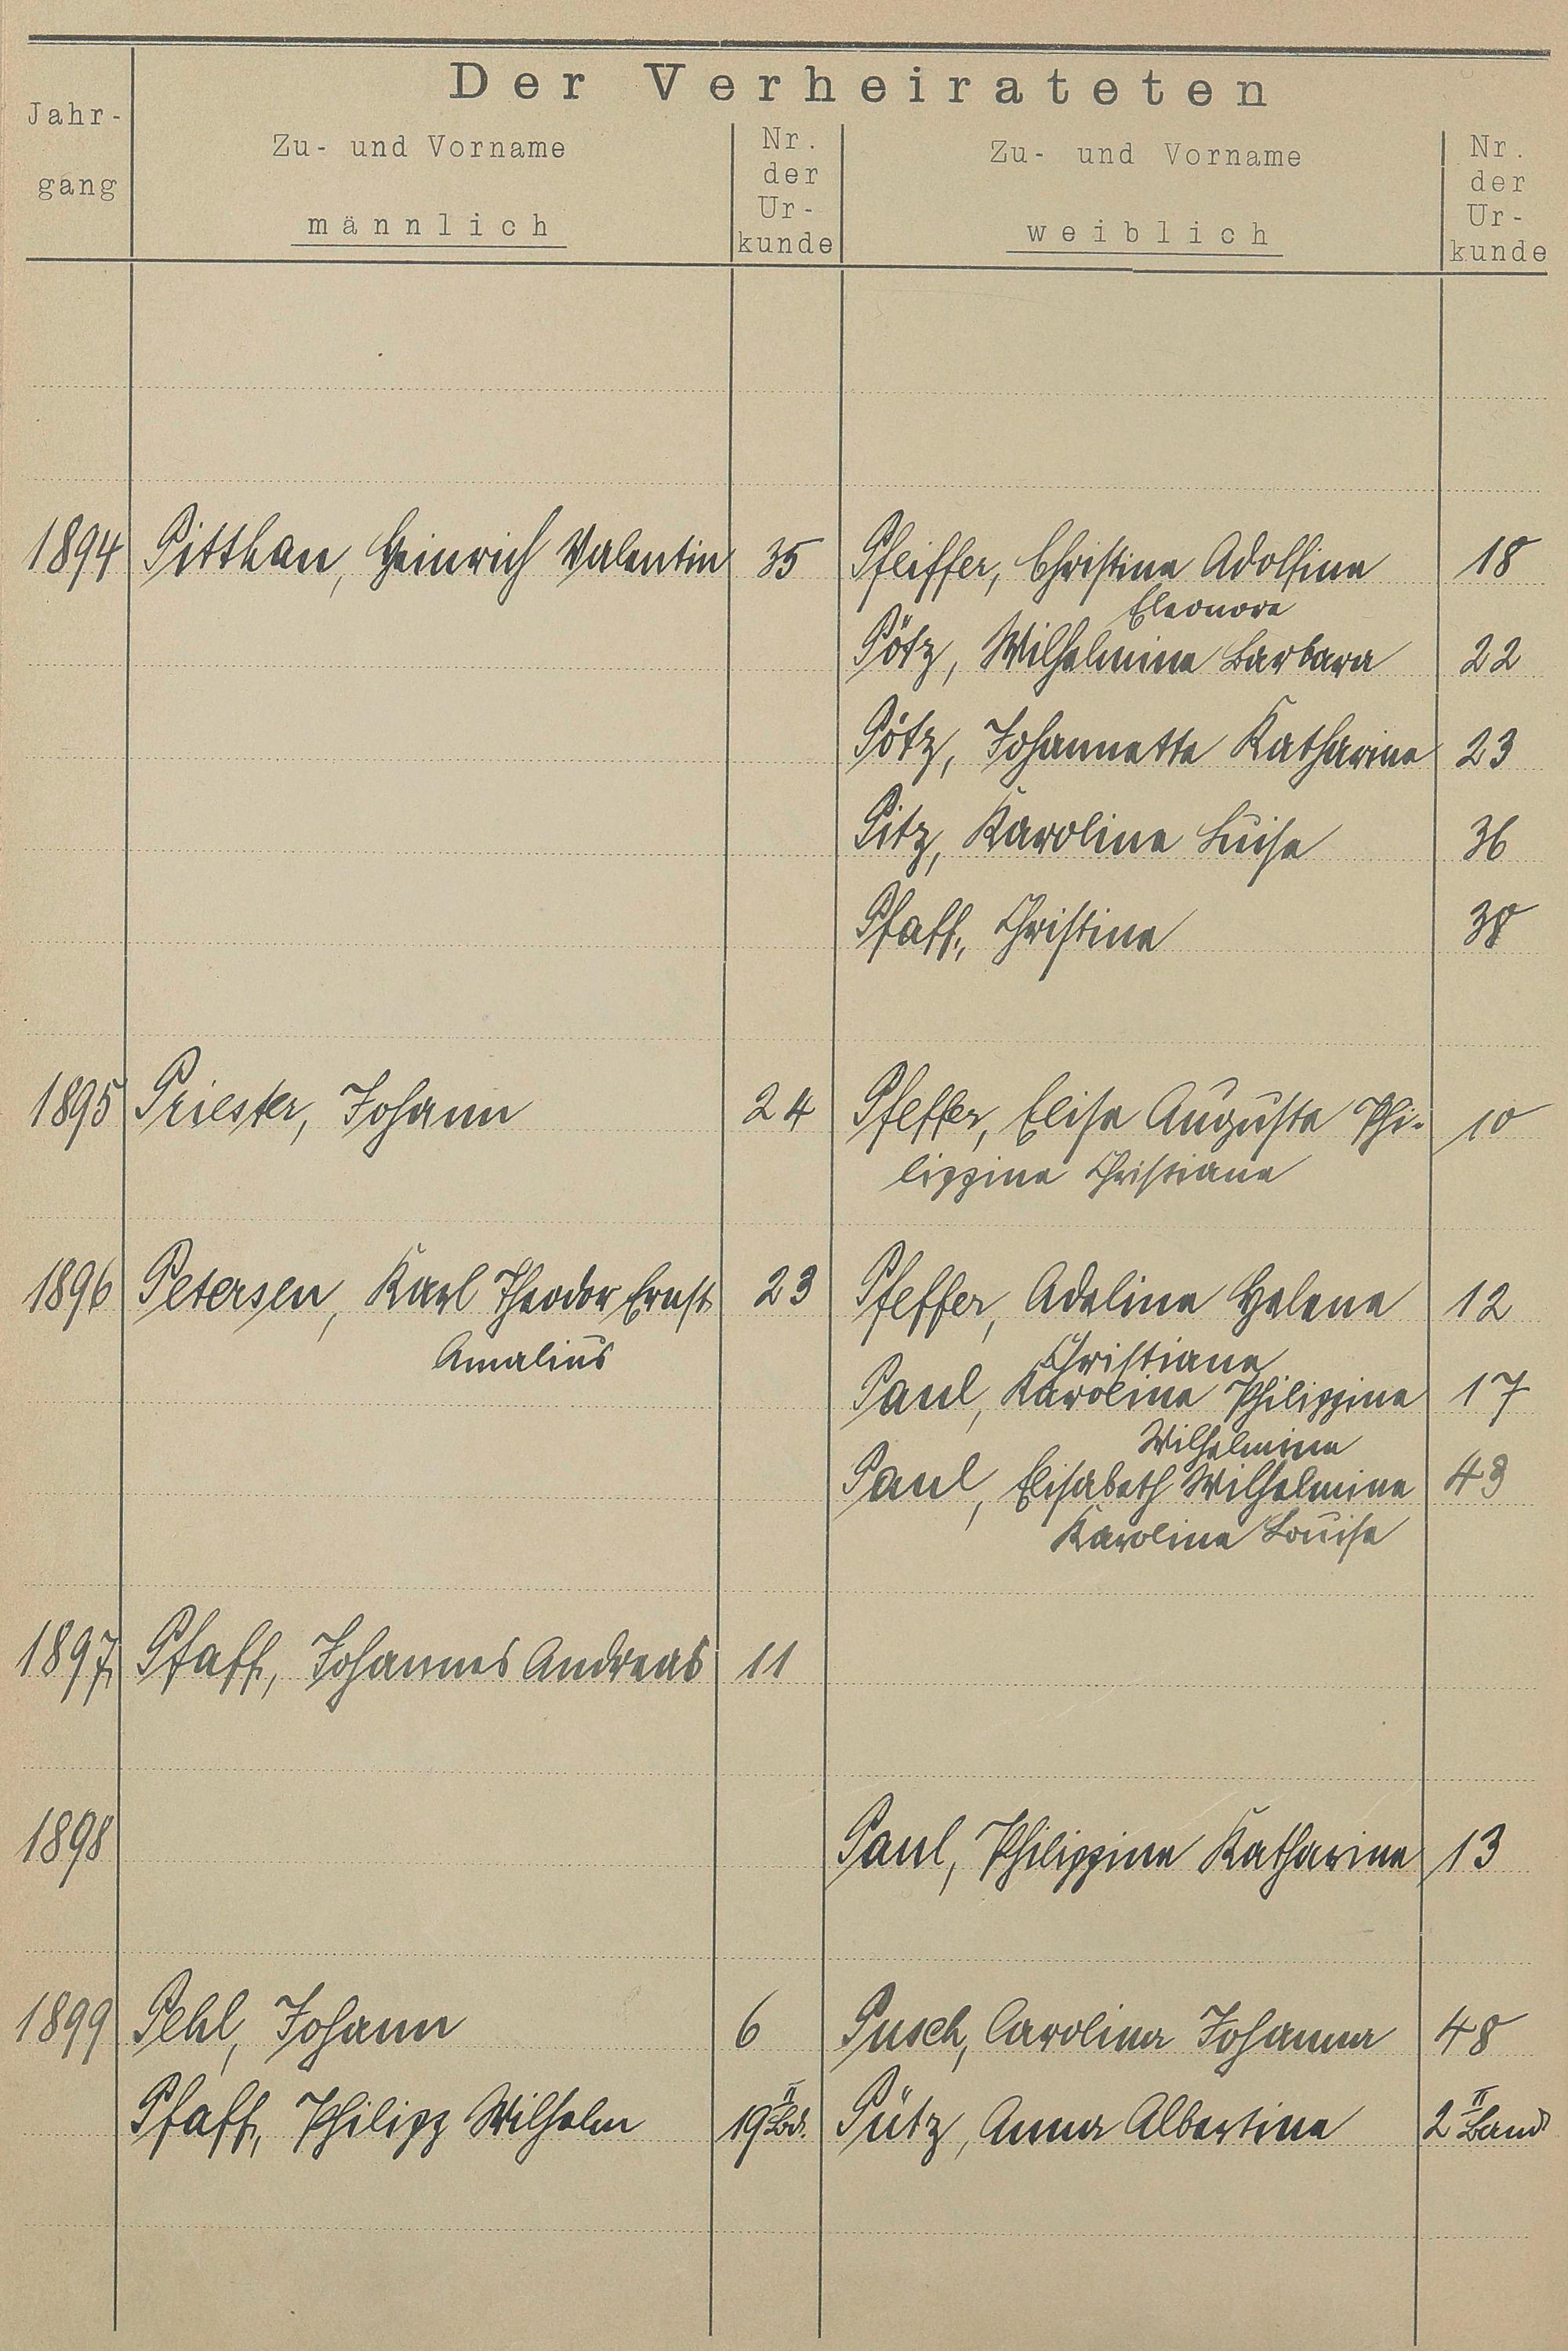 Der Verheirateten
Jahr-
gang
Zu- und Vorname
männlich
Nr.
der
Ur-
kunde
Zu- und Vorname
weiblich
Nr.
der
Ur-
kunde
1894 Pitthan, Heinrich Valentin 35 Pfeiffer, Christine Adolfine 18
Eleonore
Pötz, Wilhelmine Barbara 22
Pötz, Johannette Katharine 23
Pitz, Karoline Luise 36
Pfaff, Christine 38
1895 Priester, Johann 24 Pfeffer, Elise Auguste Phi- 10
lippine Christiane
1896 Petersen, Karl Theodor Ernst 23 Pfeffer, Adeline Helene 12
Amalius Christiane
Paul, Karoline Philippine 17
Wilhelmine
Paul, Elisabeth Wilhelmine 43
Karoline Louise
1897 Pfaff, Johannes Andreas 11
1898 Paul, Philippine Katharine 13
1899 Pehl, Johann 6 Pusch, Carolina Johanna 48
Pfaff, Philipp Wilhelm 19 II Bd. Pütz, Anna Albertine 2 II Band